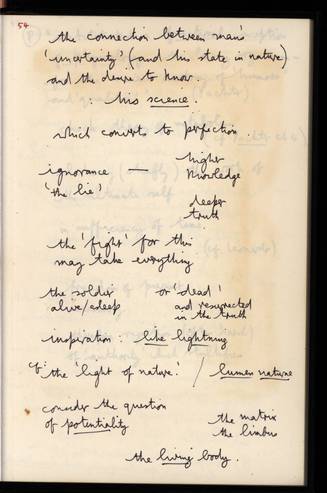 54
the connection between man's
'uncertainty' (and his state in nature)
and the desire to know
: his science.
which converts to perfection.
ignorance — higher knowledge
'the lie' deeper truth
the 'fight' for this
may take everything
the soldier or dead'
alive/asleep and resurrected
in the truth
inspiration : like lightning
cf. the 'light of nature.' / lumen naturae
consider the question
of potentiality
the matrix
the limbus
the living body.